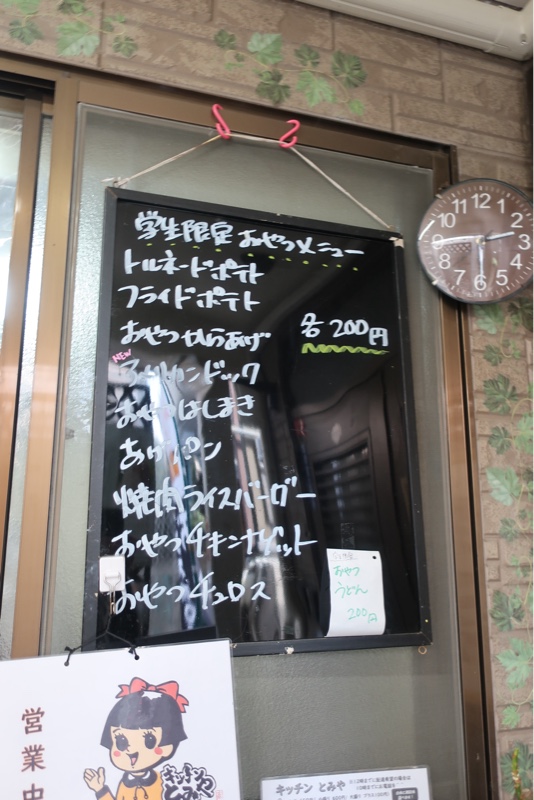 学生限定おやつメニュー
トルネードポテト
フライドポテト
おやつからあげ
各200円
NEW
アメリカンドック
おやつはしまき
あげパン
焼肉ライスバーガー
おやつチキンナゲット
おやつチュロス
おやつ
うどん
200円
営業中
キッチン
とみや
キッチン とみや
12
1
2
3
4
5
6
7
8
9
10
11